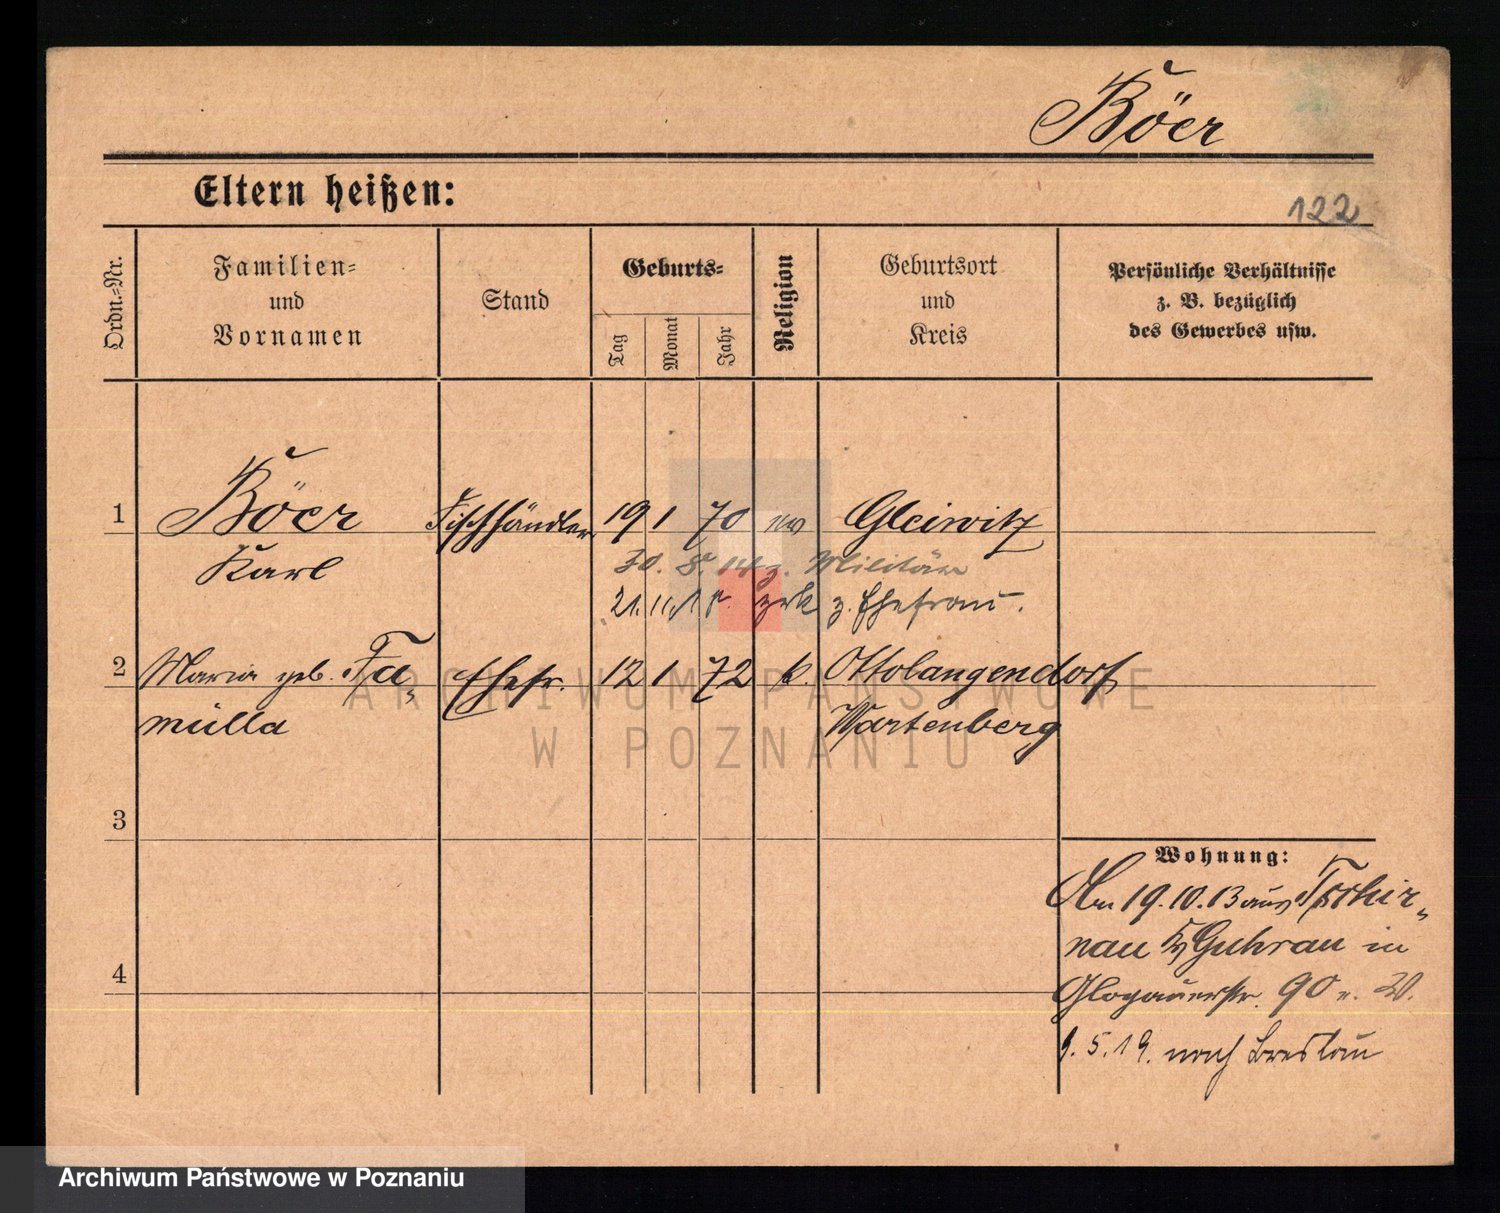 Böer
Eltern heißen:
122
Ordn.-Nr.
Familien-
und
Vornamen
Stand
Geburts-
Tag
Monat
Jahr
Religion
Geburtsort
und
Kreis
Persönliche Verhältnisse
z. B. bezüglich
des Gewerbes usw.
1 Böer Fischhändler 19 1 70 ev Gleiwitz
Karl 30. 8. 14 z. Militär
21. 11. 18. zrk z. Ehefrau.
2 Maria geb. Fa- Ehefr. 12 1 72 k. Ottolangendorf
mülla Wartenberg
ARCHIWUM PAŃSTWOWE
W POZNANIU
3
Wohnung:
Am 19.10.13 aus Tschir-
nau Guhrau in
4
Glogauerstr. 90
9.5.19. nach Breslau
Archiwum Państwowe w Poznaniu